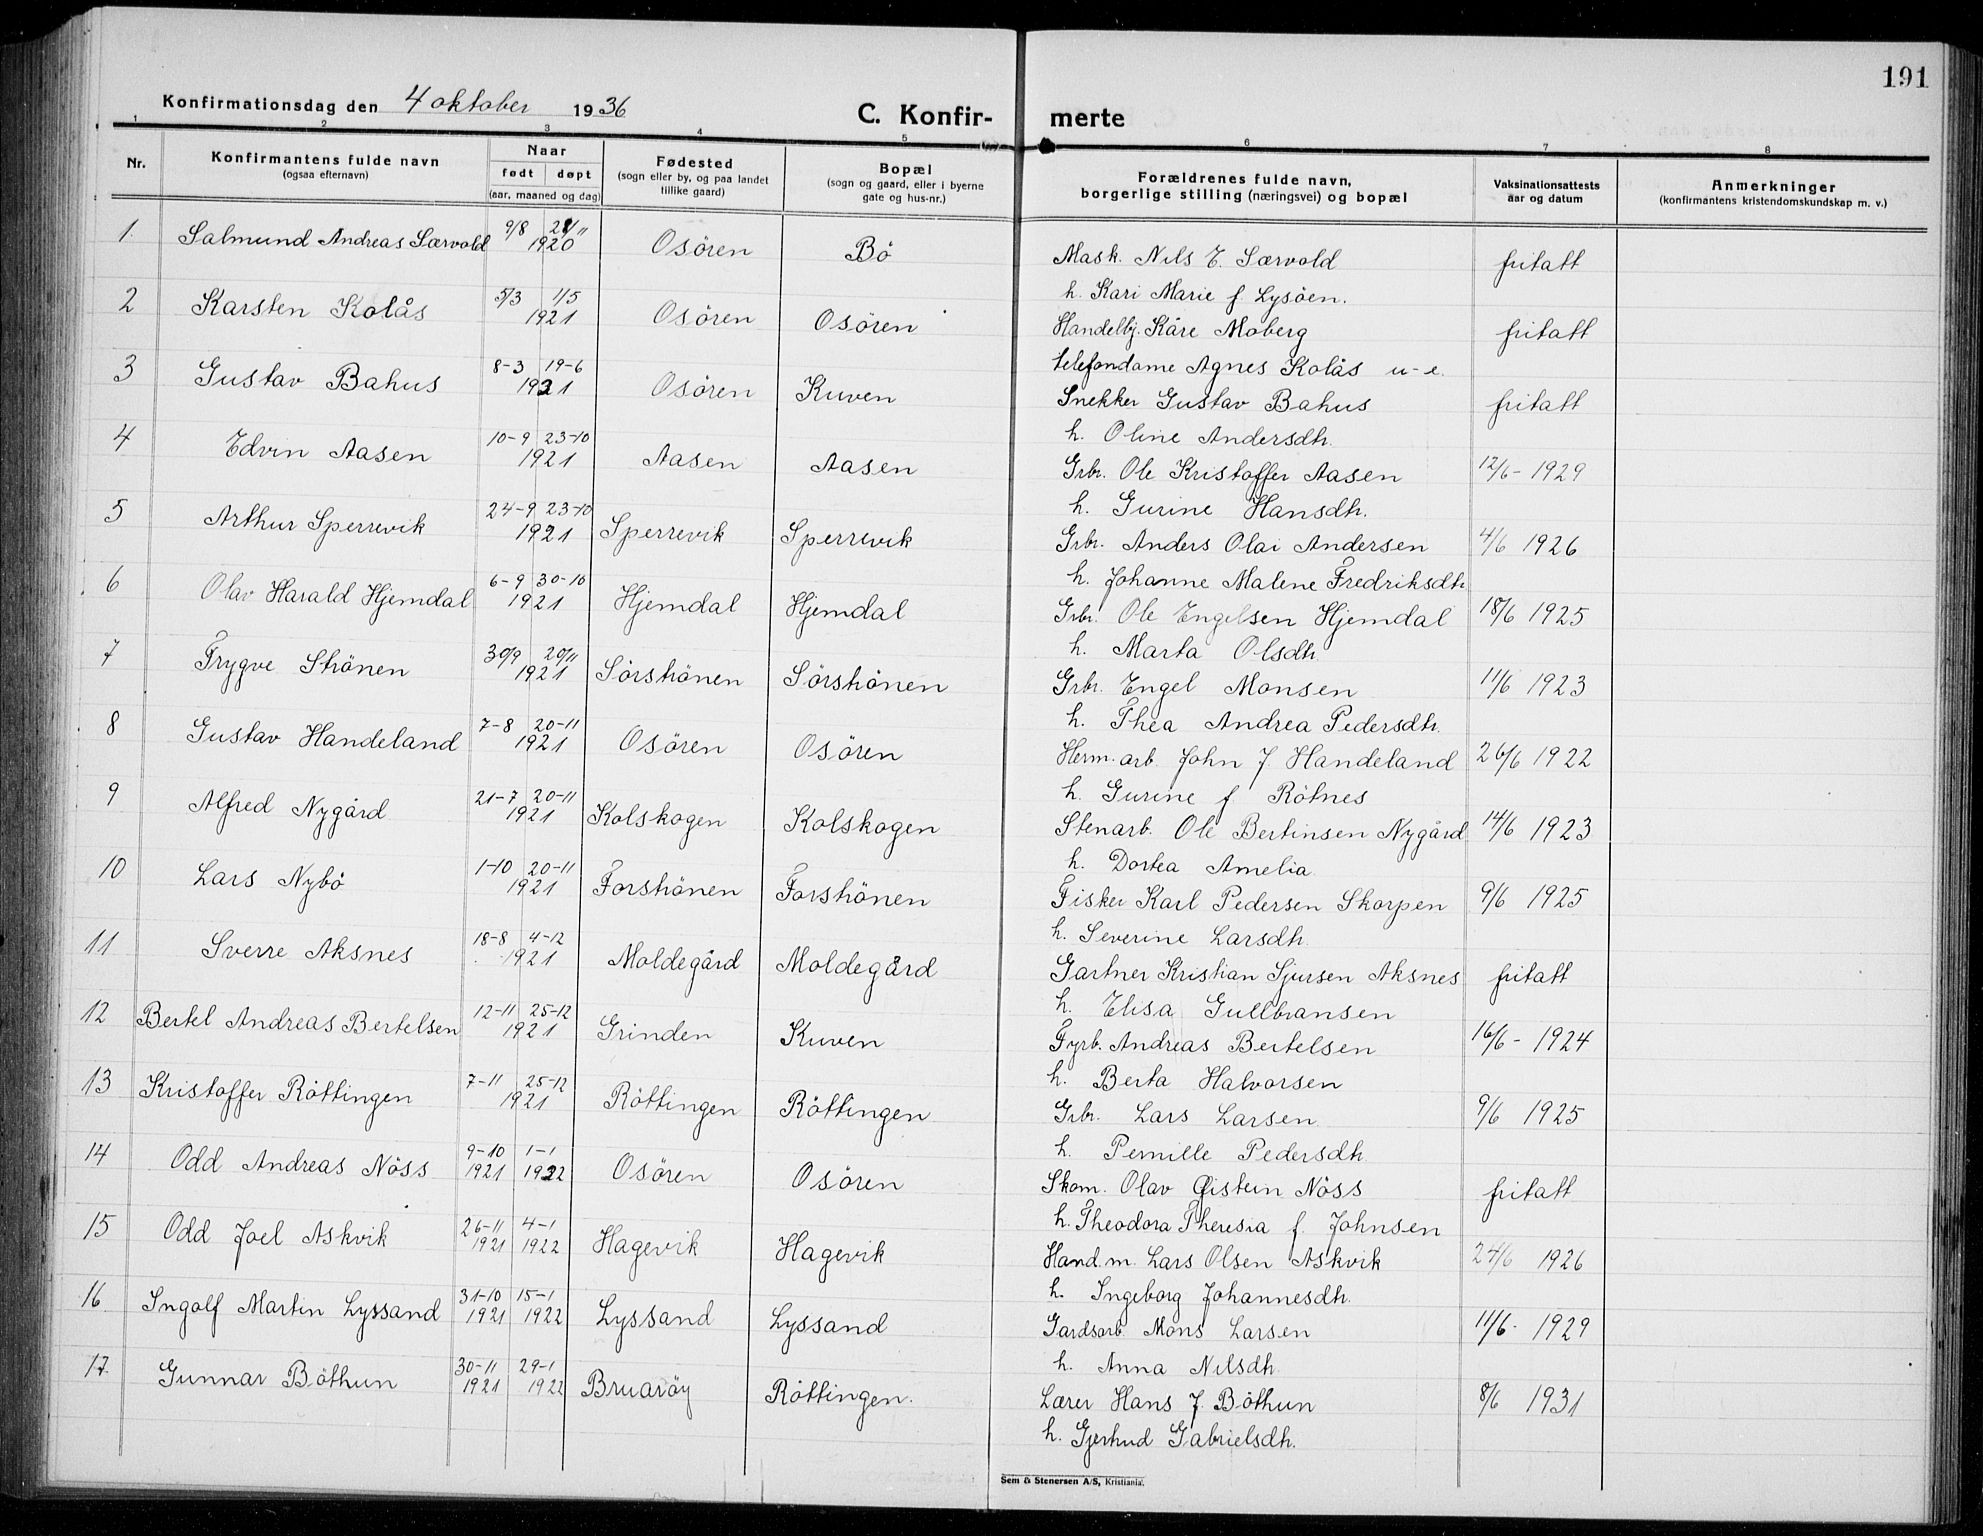 191
Konfirmationsdag den 4 oktober 1936
C. Konfir- merte
1 2 3 4 5 6 7 8
Nr.
Konfirmantens fulde navn
(ogsaa efternavn)
Naar
født døpt
(aar, maaned og dag)
Fødested
(sogn eller by, og paa landet
tillike gaard)
Bopæl
(sogn og gaard, eller i byerne
gate og hus-nr.)
Forældrenes fulde navn,
borgerlige stilling (næringsvei) og bopæl
Vaksinationsattests
aar og datum
Anmerkninger
(konfirmantens kristendomskundskap m. v.)
1. Salmund Andreas Særvold 9/8 21/11 1920 Osören Bö Mask. Nils E. Særvold fritatt
h. Kari Marie f. Lysöen.
2 Karsten Kolås 5/3 1/5 1921 Osören Osören Handelbj. Kåre Moberg fritatt
telefondame Agnes Kolås u-e.
3 Gustav Bahus 8-3 19-6 1921 Osören Kuven Snekker Gustav Bahus fritatt
h. Oline Andersdh.
4 Edvin Aasen 10-9 23-10 1921 Aasen Aasen Grbr. Ole Kristoffer Aasen 12/6- 1929
h. Gurine Hansdh.
5 Arthur Sperrevik 24-9 23-10 1921 Sperrevik Sperrevik Grbr. Anders Olai Andersen 4/6 1926
h. Johanne Malene Fredriksdh
6 Olav Harald Hjemdal 6-9 30-10 1921 Hjemdal Hjemdal Grbr. Ole Engelsen Hjemdal 18/6 1925
h. Marta Olsdh.
7 Trygve Strönen 30/9 20/11 1921 Sörströnen Sörströnen Grbr. Engel Monsen 11/6 1923
h. Thea Andrea Pedersdh.
8 Gustav Handeland 7-8 20-11 1921 Osören Osören Herm. arb. John J. Handeland 26/6 1922
h. Gurine f. Rötnes
9 Alfred Nygård 21-7 20-11 1921 Kolskogen Kolskogen Stenarb. Ole Bertinsen Nygård 14/6 1923
h. Dortea Amelia
10 Lars Nybö 1-10 20-11 1921 Forströnen Forströnen Fisker Karl Pedersen Skorpen 9/6 1925
h. Severine Larsdh.
11 Sverre Aksnes 18-8 4-12 1921 Moldegård Moldegård Gartner Kristian Sjursen Aksnes fritatt
h. Elisa Gullbransen
12 Bertel Andreas Bertelsen 12-11 25-12 1921 Grinden Kuven Fyrb. Andreas Bertelsen 16/6- 1924
h. Berta Halvorsen
13 Kristoffer Röttingen 7-11 25-12 1921 Röttingen Röttingen Grbr. Lars Larsen 9/6 1925
h. Pernille Pedersdh
14 Odd Andreas Nöss 9-10 1921 1-1 1922 Osören Osören Skom. Olav Øistein Nöss fritatt
h. Theodora Theresia f. Johnsen
15 Odd Joel Askvik 26-11 1921 4-1 1922 Hagevik Hagevik Hand. m. Lars Olsen Askvik 24/6 1926
h. Ingeborg Johannesdh.
16 Ingolf Martin Lyssand 31-10 1921 15-1 1922 Lyssand Lyssand Gardsarb Mons Larsen 11/6- 1929
h. Anna Nilsdh.
17. Gunnar Böthun 30-11 1921 29-1 1922 Bruaröy Röttingen. Lærer Hans J. Böthun 8/6 1931
h. Gjertrud Gabrielsdh.
Sem & Stenersen A/S, Kristiania.